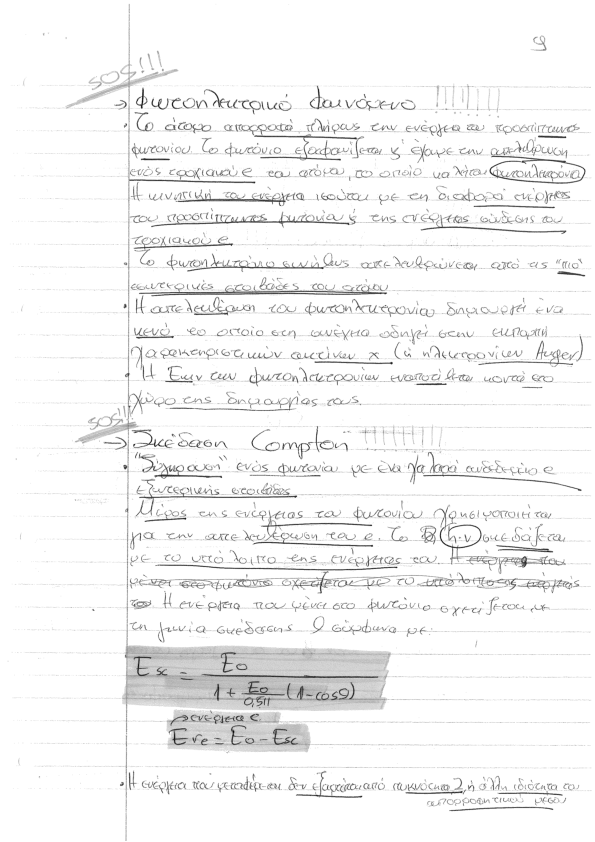 9
SOS!!!
→ Φωτοηλεκτρικό Φαινόμενο !!!!!!!
• Το άτομο απορροφά πλήρως την ενέργεια του προσπίπτοντος
φωτονίου. Το φωτόνιο εξαφανίζεται & έχουμε την απελευθέρωση
ενός τροχιακού e του ατόμου, το οποίο καλείται φωτοηλεκτρόνιο
Η κινητική του ενέργεια ισούται με τη διαφορά ενέργειας
του προσπίπτοντος φωτονίου & της ενέργειας σύνδεσης του
τροχιακού e.
• Το φωτοηλεκτρόνιο συνήθως απελευθερώνεται από τις "πιο"
εσωτερικές στοιβάδες του ατόμου
• Η απελευθέρωση του φωτοηλεκτρονίου δημιουργεί ένα
κενό το οποίο στη συνέχεια οδηγεί στην εκπομπή
χαρακτηριστικών ακτίνων x (ή ηλεκτρονίων Auger)
• Η Εκιν των φωτοηλεκτρονίων εναποτίθεται κοντά στο
χώρο της δημιουργίας τους.
SOS!!!
→ Σκέδαση Compton !!!!!!!!!
• "Σύγκρουση" ενός φωτονίου με ένα χαλαρά συνδεδεμένο e
εξωτερικής στοιβάδας
• Μέρος της ενέργειας του φωτονίου χρησιμοποιείται
για την απελευθέρωση του e. Το h·ν σκεδάζεται
με το υπόλοιπο της ενέργειας του. Η ενέργεια που
μένει στο φωτόνιο σχετίζεται με το υπόλοιπο της ενέργειας
του Η ενέργεια που μένει στο φωτόνιο σχετίζεται με
τη γωνία σκέδασης θ σύμφωνα με:
Esc = E0 / (1 + E0/0,511 (1-cosθ))
→ ενέργεια e
Ere = E0 - Esc
• Η ενέργεια που μεταφέρεται δεν εξαρτάται από πυκνότητα, Z, ή άλλη ιδιότητα του
απορροφητικού μέσου